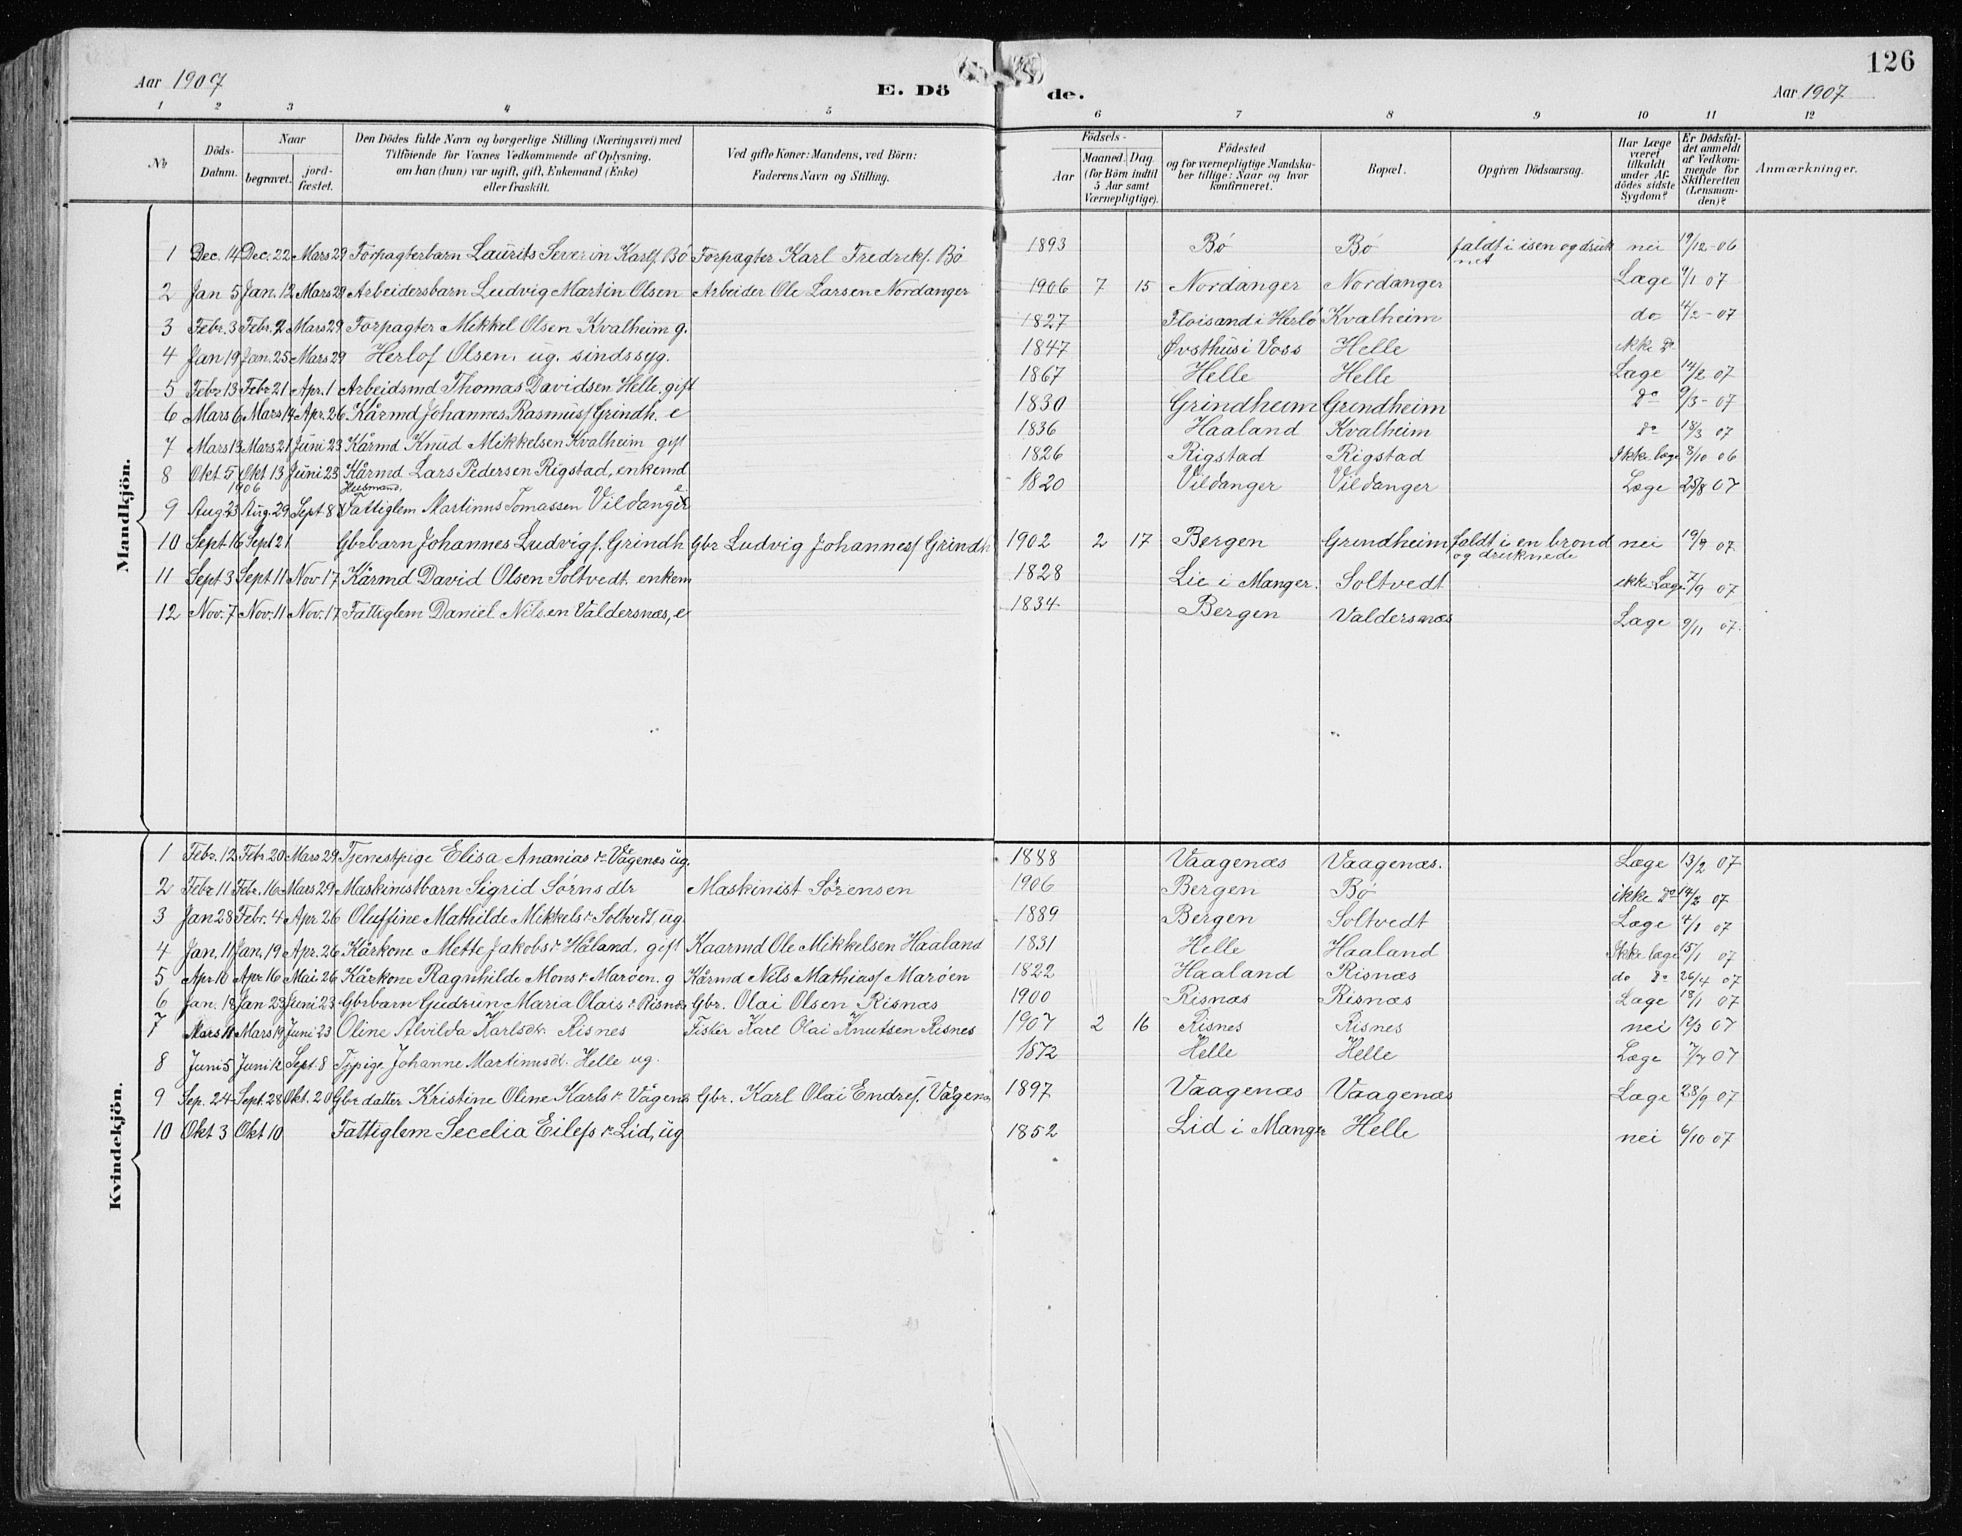 126
Aar 1907 E. Dö de. Aar 1907
1 2 3 4 5 6 7 8 9 10 11 12
No
Döds-Datum.
Naar
begravet.
jord-fæstet.
Den Dödes fulde Navn og borgerlige Stilling (Næringsvei) med
Tilföiende for Voxnes Vedkommende af Oplysning,
om han (hun) var ugift, gift, Enkemand (Enke)
eller fraskilt.
Ved gifte Koner: Mandens, ved Börn:
Faderens Navn og Stilling.
Födsels-
Aar
Maaned. Dag.
(for Börn indtil
5 Aar samt
Værnepligtige).
Födested
og for værnepligtige Mandska-
ber tillige: Naar og hvor
konfirmeret.
Bopæl.
Opgiven Dödsaarsag.
Har Læge
været
tilkaldt
under Af-
dödes sidste
Sygdom?
Er Dödsfal-
det anmeldt
af Vedkom-
mende for
Skifteretten
(Lensman-
den)?
Anmærkninger.
Mandkjön.
1 Dec. 14 Dec. 22 Mars 29 Forpagterbarn Laurits Severin Karlf. Bö Forpagter Karl Fredrikf. Bö 1893 Bö Bö faldt i isen og druk nei 19/12-06
net
2 Jan 5 Jan. 12 Mars 29 Arbeidersbarn Ludvig Martin Olsen Arbeider Ole Larsen Nordanger 1906 7 15 Nordanger Nordanger Læge 9/1 07
3 Febr. 3 Febr. 2 Mars 29 Forpagter Mikkel Olsen Kvalheim g. 1827 Floisand i Herlö Kvalheim do 4/2-07
4 Jan 19 Jan. 25 Mars 29 Herlof Olsen, ug. sindssyg. 1847 Øvsthus i Voss Helle ikke Do
5 Febr 13 Febr 21 Apr. 1 Arbeidsmd Thomas Davidsen Helle, gift 1867 Helle Helle Læge 14/2 07
6 Mars 6 Mars 14 Apr. 26 Kårmd Johannes Rasmusf. Grindh. e 1830 Grindheim Grindheim Do 9/3-07
7 Mars 13 Mars 21 Juni 23 Kårmd Knud Mikkelsen Kvalheim gift 1836 Haaland Kvalheim Do 18/3 07
8 Okt 5 Okt 13 Juni 23 Kårmd Lars Pedersen Rigstad, enkemd 1826 Rigstad Rigstad Ikke læge 8/10 06
1906 Husmand,
9 Aug 23 Aug. 29 Sept 8 Fattiglem Martinus Tomassen Vildanger e 1820 Vildanger Vildanger Læge 25/8 07
10 Sept 16 Sept 21 Gbrbarn Johannes Ludvigf. Grindh Gbr Ludvig Johannesf Grindh 1902 2 17 Bergen Grindheim faldt i en brond nei 19/9 07
og druknede
11 Sept 3 Sept 11 Nov 17 Kårmd David Olsen Soltvedt enkem 1828 Lie i Manger. Soltvedt ikke Læge 7/9 07
12 Nov. 7 Nov. 11 Nov. 17 Fattiglem Daniel Nilsen Valdersnæs, e 1834 Bergen Valdersnæs Læge 9/11 07.
Kvindekjön.
1 Febr. 12 Febr 20 Mars 29 Tjenestpige Elisa Ananias dr Vågenæs ug. 1888 Vaagenæs Vaagenæs. Læge 13/2 07
2 Febr 11 Febr. 16 Mars 29 Maskinistbarn Sigrid Sörnsdtr Maskinist Sörensen 1906 Bergen Bö ikke Do 14/2 07
3 Jan 28 Febr. 4 Apr 26 Oluffine Mathilde Mikkels dr Soltvedt, ug. 1889 Bergen Soltvedt Læge 4/1 07
4 Jan. 11 Jan. 19 Apr. 26 Kårkone Mette Jakobs dr Håland, gift Kaarmd Ole Mikkelsen Haaland 1831 Helle Haaland Ikke læge 15/1 07
5 Apr. 10 Apr 16 Mai 26 Kårkone Ragnhilde Mons dr Maröen. g Kårmd Nils Mathiasf Maröen 1822 Haaland Risnæs do Do 26/4 07
6 Jan. 18 Jan 23 Juni 23 Gbrbarn Gudrun Maria Olais dr Risnæs Gbr. Olai Olsen Risnæs 1900 Risnæs Risnæs Læge 18/1 07
7 Mars 11 Mars 19 Juni 23 Oline Alvilda Karlsdtr. Risnes Fisker Karl Olai Knutsen Risnes 1907 2 16 Risnes Risnes nei 12/3 07
8 Juni 5 Juni 12 Sept. 8 Tjpige Johanne Martinusd. Helle ug. 1872 Helle Helle Læge 7/7 07
9 Sep. 24 Sept. 28 Okt. 20 Gbrdatter Kristine Oline Karls dr Vågenæs Gbr. Karl Olai Endref. Vågenæs 1897 Vaagenæs Vaagenæs Læge 28/9 07
10 Okt 3 Okt 10 Fattiglem Secelia Eilefs dr Lid, ug 1852 Lid i Mangr Helle nei 6/10 07